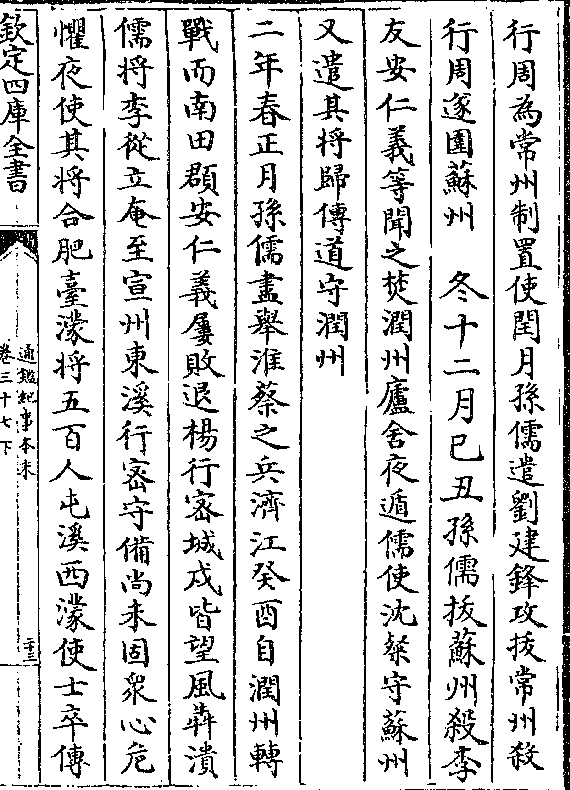 行周為常州制置使閏月孫儒遣劉建鋒攻拔常州殺
行周遂圍蘇州　冬十二月己丑孫儒拔蘇州殺李
友安仁義等聞之焚潤州廬舍夜遁儒使沈粲守蘇州
又遣其將歸傳道守潤州
二年春正月孫儒盡舉淮蔡之兵濟江癸酉自潤州轉
戰而南田頵安仁義屢敗退楊行密城戍皆望風奔潰
儒將李從立奄至宣州東溪行密守備尚未固衆心危
懼夜使其將合肥臺濛將五百人屯溪西濛使士卒傳
欽定四庫全書
通鑑紀事本末
卷三十七下
二十三